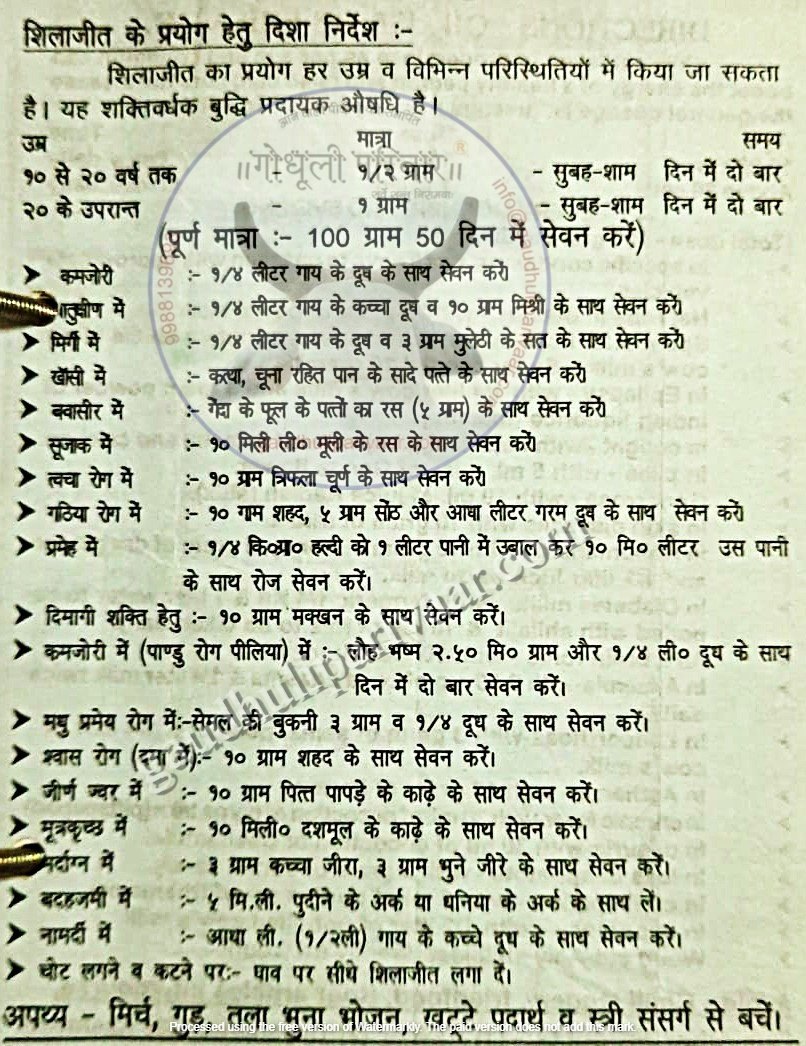 शिलाजीत के प्रयोग हेतु दिशा निर्देश :-
शिलाजीत का प्रयोग हर उम्र व विभिन्न परिस्थितियों में किया जा सकता
है। यह शक्तिवर्धक बुद्धि प्रदायक औषधि है।
उम्र मात्रा समय
१० से २० वर्ष तक - १/२ ग्राम - सुबह-शाम दिन में दो बार
२० के उपरान्त - १ ग्राम - सुबह-शाम दिन में दो बार
(पूर्ण मात्रा :- 100 ग्राम 50 दिन में सेवन करें)
➤ कमजोरी :- १/४ लीटर गाय के दूध के साथ सेवन करें।
:- १/४ लीटर गाय के कच्चा दूध व १० ग्राम मिश्री के साथ सेवन करें।
➤ मिर्गी में :- १/४ लीटर गाय के दूध व ३ ग्राम मुलेठी के सत के साथ सेवन करें।
➤ खाँसी में :- कत्था, चूना रहित पान के सादे पत्ते के साथ सेवन करें।
➤ बवासीर में :- गेंदा के फूल के पत्तों का रस (५ ग्राम) के साथ सेवन करें।
➤ सूजाक में :- १० मिली ली० मूली के रस के साथ सेवन करें।
➤ त्वचा रोग में :- १० ग्राम त्रिफला चूर्ण के साथ सेवन करें।
➤ गठिया रोग में :- १० गाम शहद, ५ ग्राम सोंठ और आधा लीटर गरम दूध के साथ सेवन करें।
➤ प्रमेह में :- १/४ कि०ग्रा० हल्दी को १ लीटर पानी में उबाल कर १० मि० लीटर उस पानी
के साथ रोज सेवन करें।
➤ दिमागी शक्ति हेतु :- १० ग्राम मक्खन के साथ सेवन करें।
➤ कमजोरी में (पाण्डु रोग पीलिया) में :- लौह भष्म २.५० मि० ग्राम और १/४ ली० दूध के साथ
दिन में दो बार सेवन करें।
➤ मधु प्रमेय रोग में:-सेमल की बुकनी ३ ग्राम व १/४ दूध के साथ सेवन करें।
➤ श्वास रोग (दमा में):- १० ग्राम शहद के साथ सेवन करें।
➤ जीर्ण ज्वर में :- १० ग्राम पित्त पापड़े के काढ़े के साथ सेवन करें।
➤ मूत्रकृच्छ में :- १० मिली० दशमूल के काढ़े के साथ सेवन करें।
:- ३ ग्राम कच्चा जीरा, ३ ग्राम भुने जीरे के साथ सेवन करें।
➤ बदहजमी में :- ५ मि.ली. पुदीने के अर्क या धनिया के अर्क के साथ लें।
➤ नामर्दी में :- आधा ली. (१/२ली) गाय के कच्चे दूध के साथ सेवन करें।
➤ चोट लगने व कटने पर:- घाव पर सीधे शिलाजीत लगा दें।
अपथ्य - मिर्च, गुड़, तला भुना भोजन, खट्टे पदार्थ व स्त्री संसर्ग से बचें।
॥गोधूली परिवार॥
gaudhulipariwaar.com
Processed using the free version of Watermarkly. The paid version does not add this mark.